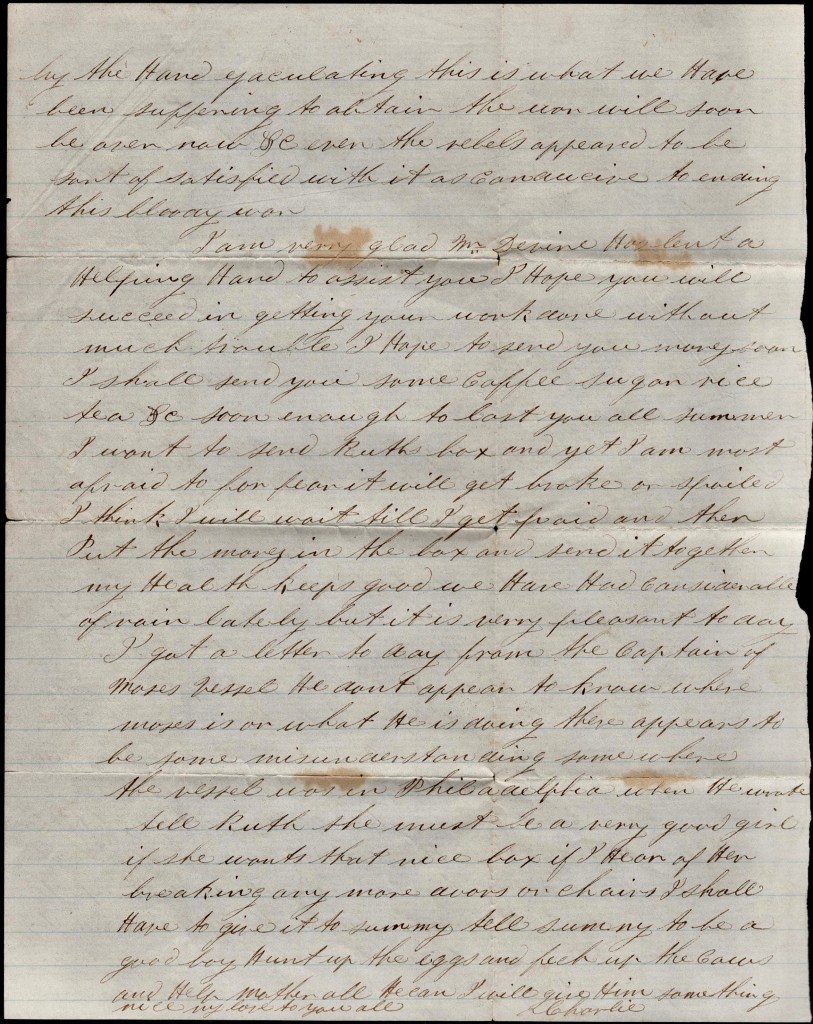 by the Hand ejaculating this is what we Have
been suffering to obtain the war will soon
be over now &c even the rebels appeared to be
sort of satisfied with it as conducive to ending
this bloody war
I am verry glad Mr Devine Has lent a
Helping Hand to assist you I Hope you will
succeed in getting your work done without
much trouble I Hope to send you money soon
I shall send you some Coffee sugar rice
tea &c soon enough to last you all summer
I want to send Ruths box and yet I am most
afraid to for fear it will get broke or spoiled
I think I will wait till I get paid and then
Put the money in the box and send it together
my Health keeps good we Have Had considerable
of rain lately but it is verry pleasant to day
I got a letter to day from the Captain of
Moses vessel He dont appear to know where
moses is or what He is doing there appears to
be some misunderstanding some where
the vessel was in Philadelphia when He wrote
tell Ruth she must be a verry good girl
if she wants that nice box if I Hear of Her
breaking any more doors or chairs I shall
Have to give it to summy tell summy to be a
good boy Hunt up the eggs and fech up the Cows
and Help Mother all He can I will give Him something
nice my love to you all Charlie